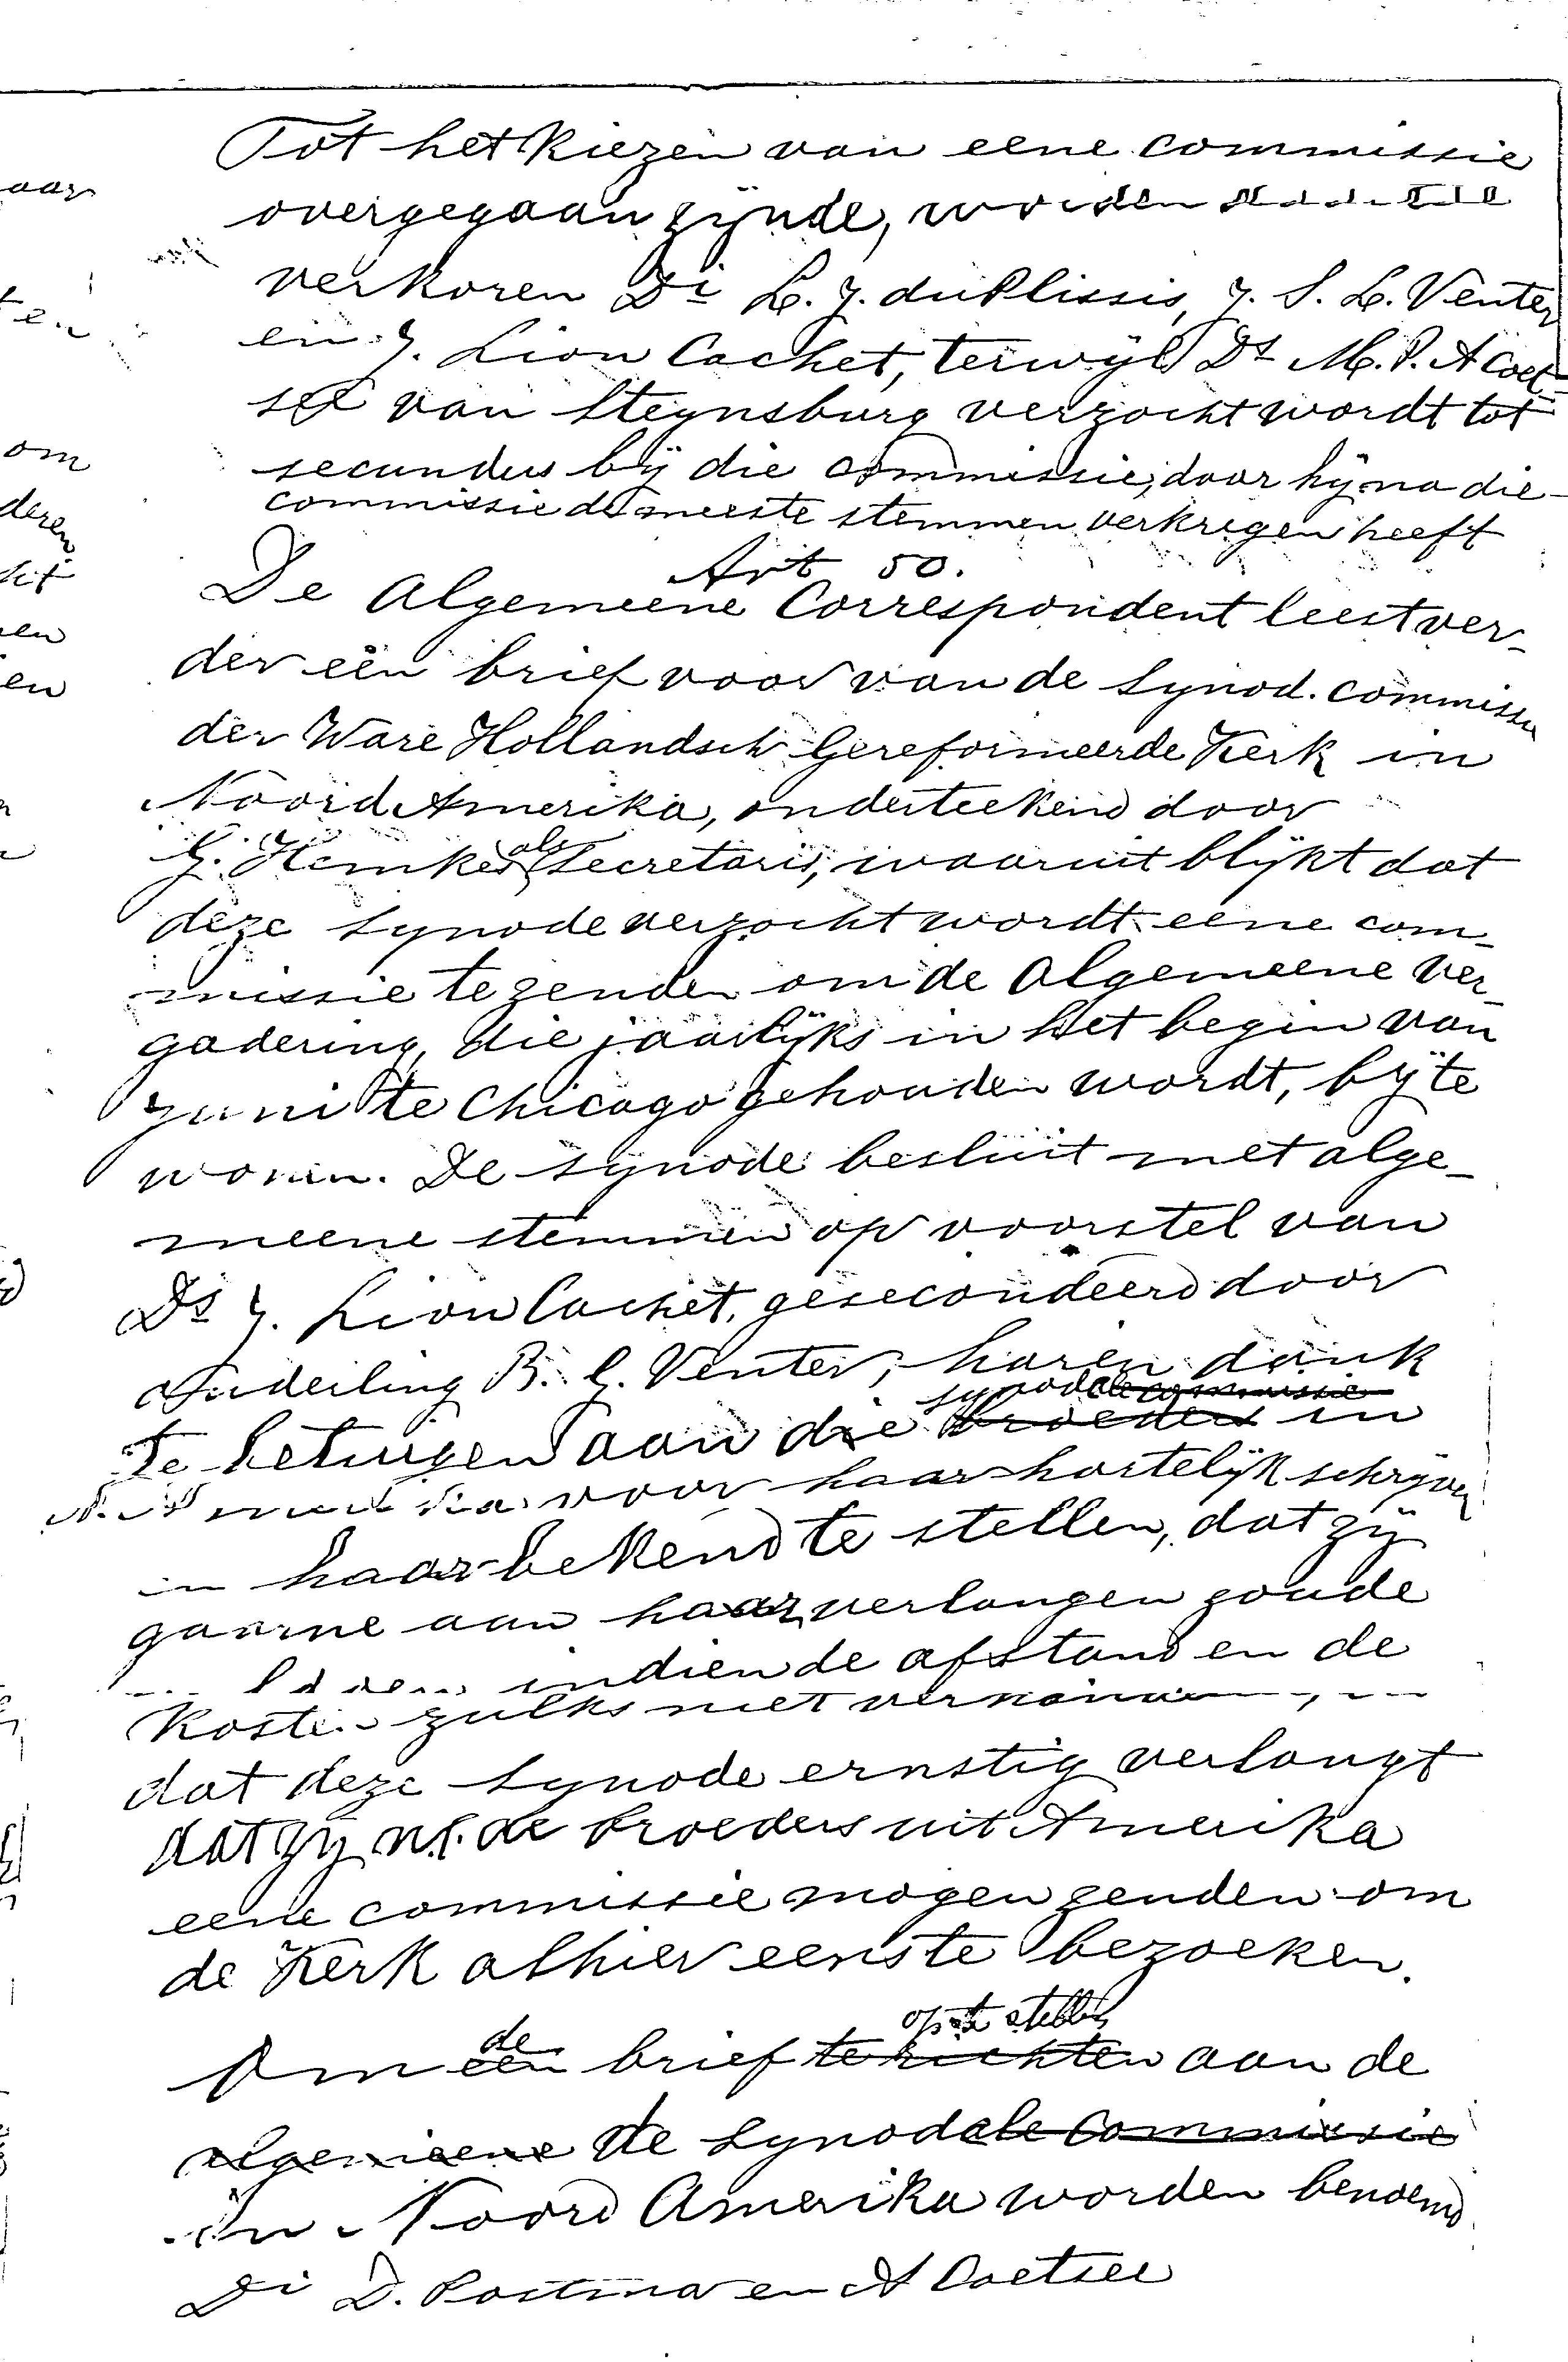 Tot het kiezen van eene commissie
overgegaan zijnde, worden
verkoren Di L. J. duPlissis, J. S. L. Venter
en J. Lion Cachet, terwijl Ds M. P. A Coet-
see van Steynsburg verzocht wordt tot
secundus bij die commissie, daar hij na die
commissie de meeste stemmen verkregen heeft
Art 50.
De Algemeene Correspondent leest ver-
der een brief voor van de Synod. commissie
der Ware Hollandsch Gereformeerde Kerk in
Noord Amerika, onderteekend door
G. Hemkes als Secretaris, waaruit blijkt dat
deze Synode verzocht wordt eene com-
missie te zenden om de Algemeene Ver-
gadering, die jaarlijks in het begin van
Juni te Chicago gehouden wordt, bij te
wonen. De Synode besluit met alge-
meene stemmen op voorstel van
Ds J. Lion Cachet, gesecondeerd door
Ouderling B. G. Venter, haren dank
synodale commissie
te betuigen aan die broeders in
N. Amerika voor haar hartelijk schrijven
en haar bekend te stellen, dat zij
gaarne aan haar verlangen zoude
indien de afstand en de
Kosten zulks niet
dat deze Synode ernstig verlangt
dat zij n.l. de broeders uit Amerika
eene commissie mogen zenden om
de Kerk alhier eens te bezoeken.
de op te stellen
Om een brief te richten aan de
algemeene de Synodale Commissie
in Noord Amerika worden benoemd
Di D. Postma en A Coetsee